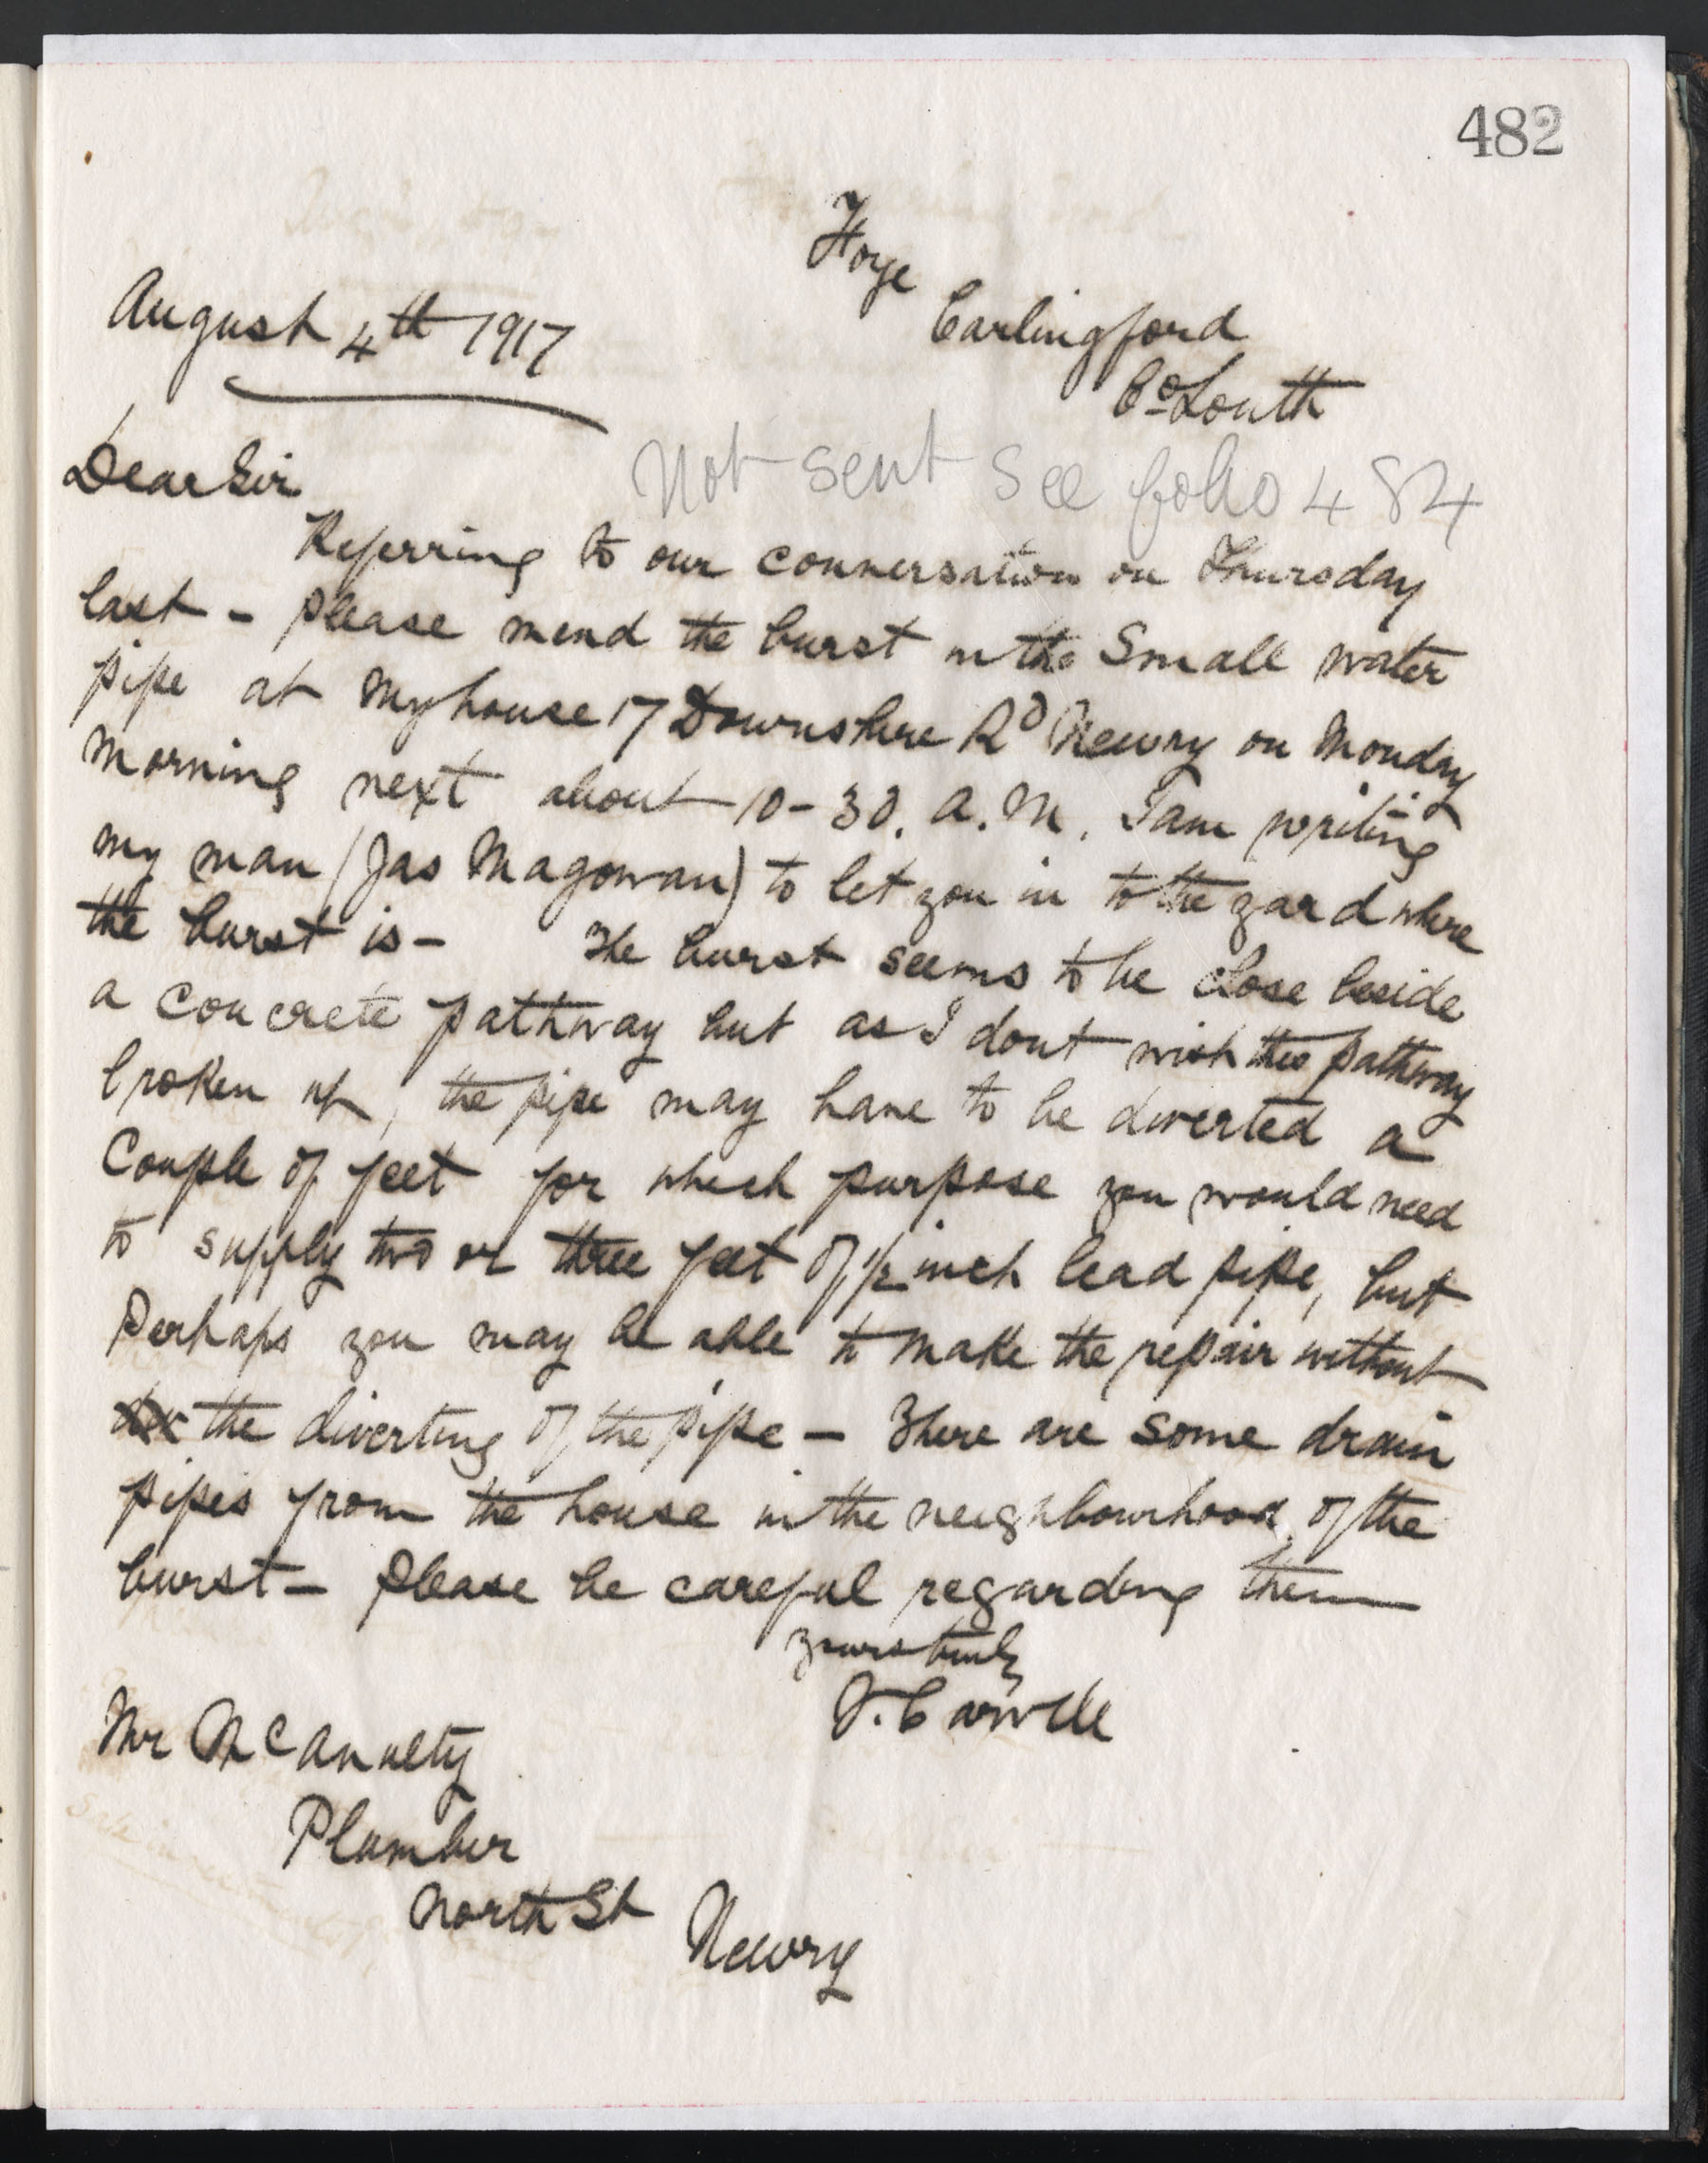 482
Foye
Carlingford
Co Louth
August 4th 1917
Not sent see folio 484
Dear Sir
Referring to our conversation on Thursday
last - please mend the burst in the Small water
pipe at my house 17 Downshire Rd Newry on Monday
morning next about 10-30. A.M. I am writing
my man (Jas Magowan) to let you in to the yard where
the burst is - The burst seems to be close beside
a concrete pathway but as I dont wish this pathway
broken up, the pipe may have to be diverted a
Couple of feet for which purpose you would need
to supply two or three feet of 1/2 inch lead pipe, but
Perhaps you may be able to make the repair without
the diverting of the pipe - There are some drain
pipes from the house in the neighbourhood of the
burst - please be careful regarding them
yours truly
J. Carvill
Mr McAnulty
Plumber
North St
Newry